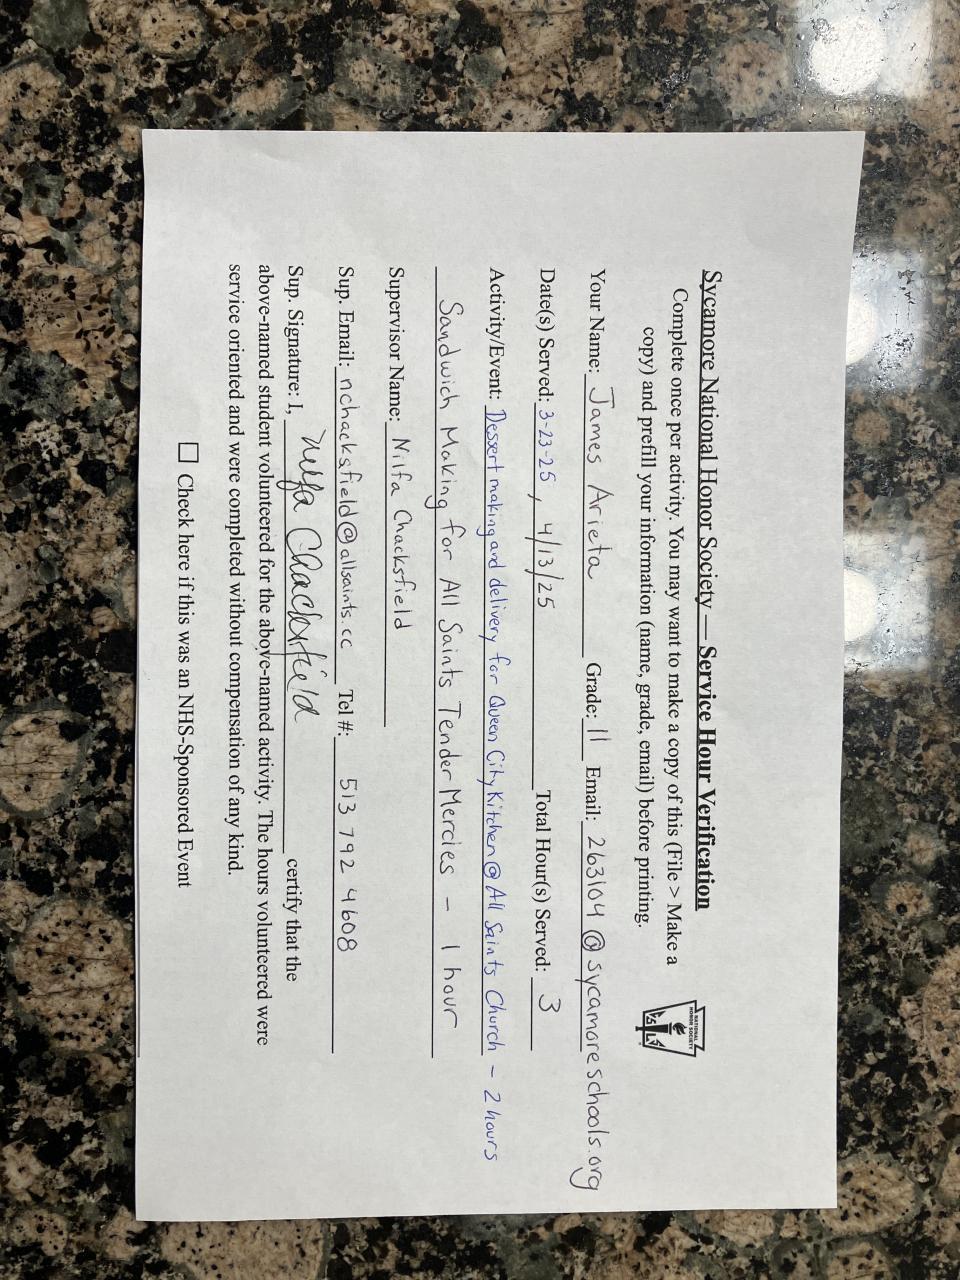 Sycamore National Honor Society — Service Hour Verification
Complete once per activity. You may want to make a copy of this (File > Make a
copy) and prefill your information (name, grade, email) before printing.
NATIONAL
HONOR SOCIETY
Your Name: James Arieta Grade: 11 Email: 263104@sycamoreschools.org
Date(s) Served: 3-23-25, 4/13/25 Total Hour(s) Served: 3
Activity/Event: Dessert making and delivery for Queen City Kitchen @ All Saints Church - 2 hours
Sandwich Making for All Saints Tender Mercies - 1 hour
Supervisor Name: Nilfa Chacksfield
Sup. Email: nchacksfield@allsaints.cc Tel #: 513 792 4608
Sup. Signature: I, Nilfa Chacksfield certify that the
above-named student volunteered for the above-named activity. The hours volunteered were
service oriented and were completed without compensation of any kind.
☐ Check here if this was an NHS-Sponsored Event